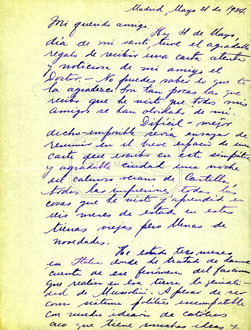 Madrid, Mayo 31 de 1934.
Mi querido amigo:
Hoy 31 de Mayo,
día de mi santo, tuve el agradable
regalo de recibir una carta atenta
y noticiosa de mi amigo el
Doctor.- No puedes saber lo que te
la agradezco. Son tan pocas las que
recibo que he visto que todos mis
amigos se han olvidado de mi.
Difícil - mejor
dicho imposible sería ensayar de
resumir en el breve espacio de una
carta que escribo en esta simpática
y agradable ciudad una noche
del caluroso verano de Castilla
todas las impresiones, todas las
cosas que he visto y aprendido en
seis meses de estad en estas
tierras viejas pero llenas de
novedades.
He estado tres meses
en Italia donde he tratado de darme
cuenta de ese fenómeno del fascismo
que realiza en esa tierra la genialidad
de Mussolini. A pesar de ser
un sistema político incompatible
con mucho ideario de católico
creo que tiene muchas ideas